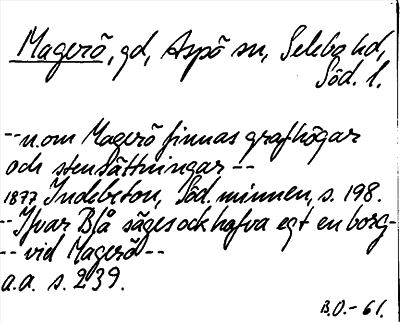 Magerö, gd, Aspö sn, Selebo hd,
Söd. l.
-- n. om Magerö finnas grafhögar
och stensättningar --
1877 Indebetou, Söd. minnen, s. 198.
-- Ifvar Blå säges ock hafva egt en borg-
-- vid Magerö --
a.a. s. 239.
B.O. - 61.